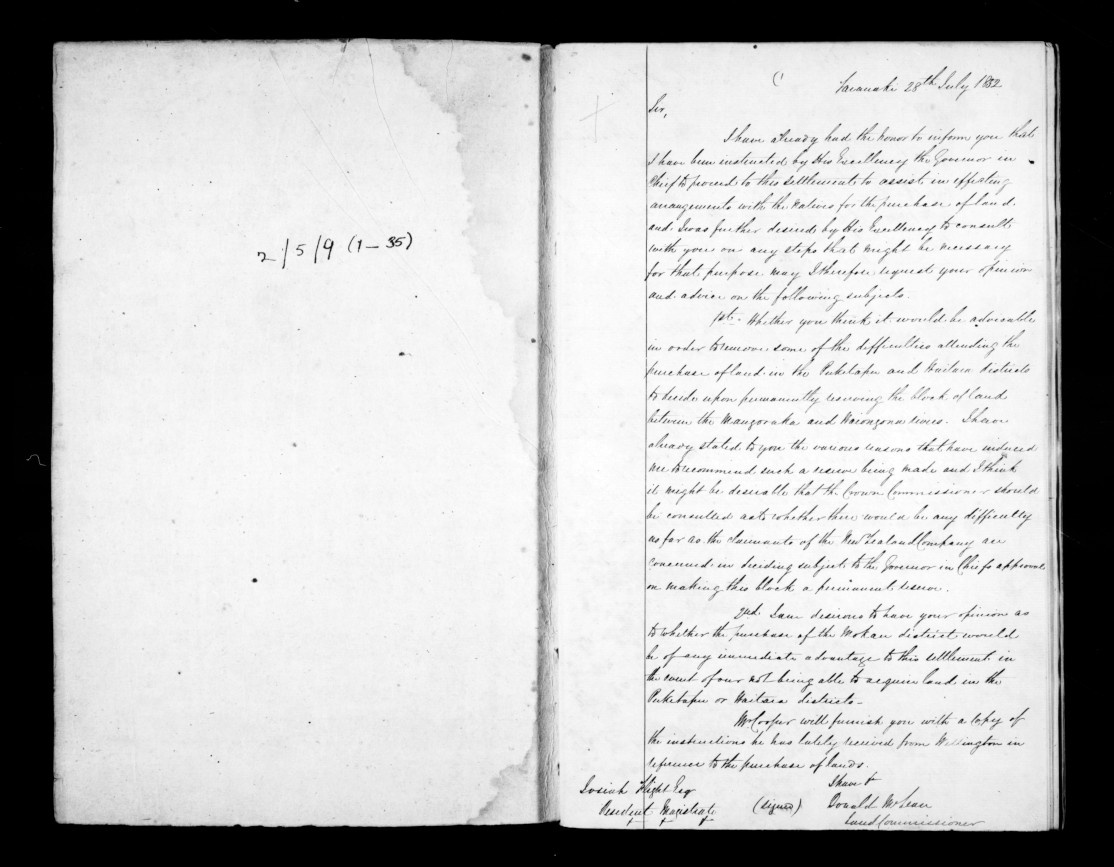 2/5/9 (1-35)
Taranaki 28th July 1852
Sir,
I have already had the honor to inform you that
I have been instructed by His Excellency the Governor in
Chief to proceed to this settlement to assist in effecting
arrangements with the Natives for the purchase of land
and I was further desired by His Excellency to consult
with you on any steps that might be necessary
for that purpose may I therefore request your opinion
and advice on the following subjects.
1st. Whether you think it would be advisable
in order to remove some of the difficulties attending the
purchase of land in the Puketapu and Waitara districts
to decide upon permanently reserving the block of land
between the Mangoraka and Waiongona rivers. I have
already stated to you the various reasons that have induced
me to recommend such a reserve being made and I think
it might be desirable that the Crown Commissioner should
be consulted as to whether there would be any difficulty
as far as the claimants of the New Zealand Company are
concerned in deciding subject to the Governor in Chiefs approval
on making this block a permanent reserve.
2nd. I am desirous to have your opinion as
to whether the purchase of the Mokau district would
be of any immediate advantage to this settlement in
the event of our not being able to acquire land in the
Puketapu or Waitara districts-
Mr Cooper will furnish you with a copy of
the instructions he has lately received from Wellington in
reference to the purchase of lands.
I have &
Josiah Flight Esq
(signed) Donald McLean
Resident Magistrate
Land Commissioner